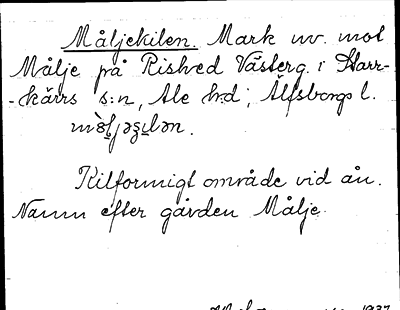 Måljekilen. Mark nv. mot
Målje på Rished Västerg. i Starr-
-kärrs s:n, Ale h:d, Älfsborgs l.
Kilformigt område vid ån.
Namn efter gården Målje.
1937